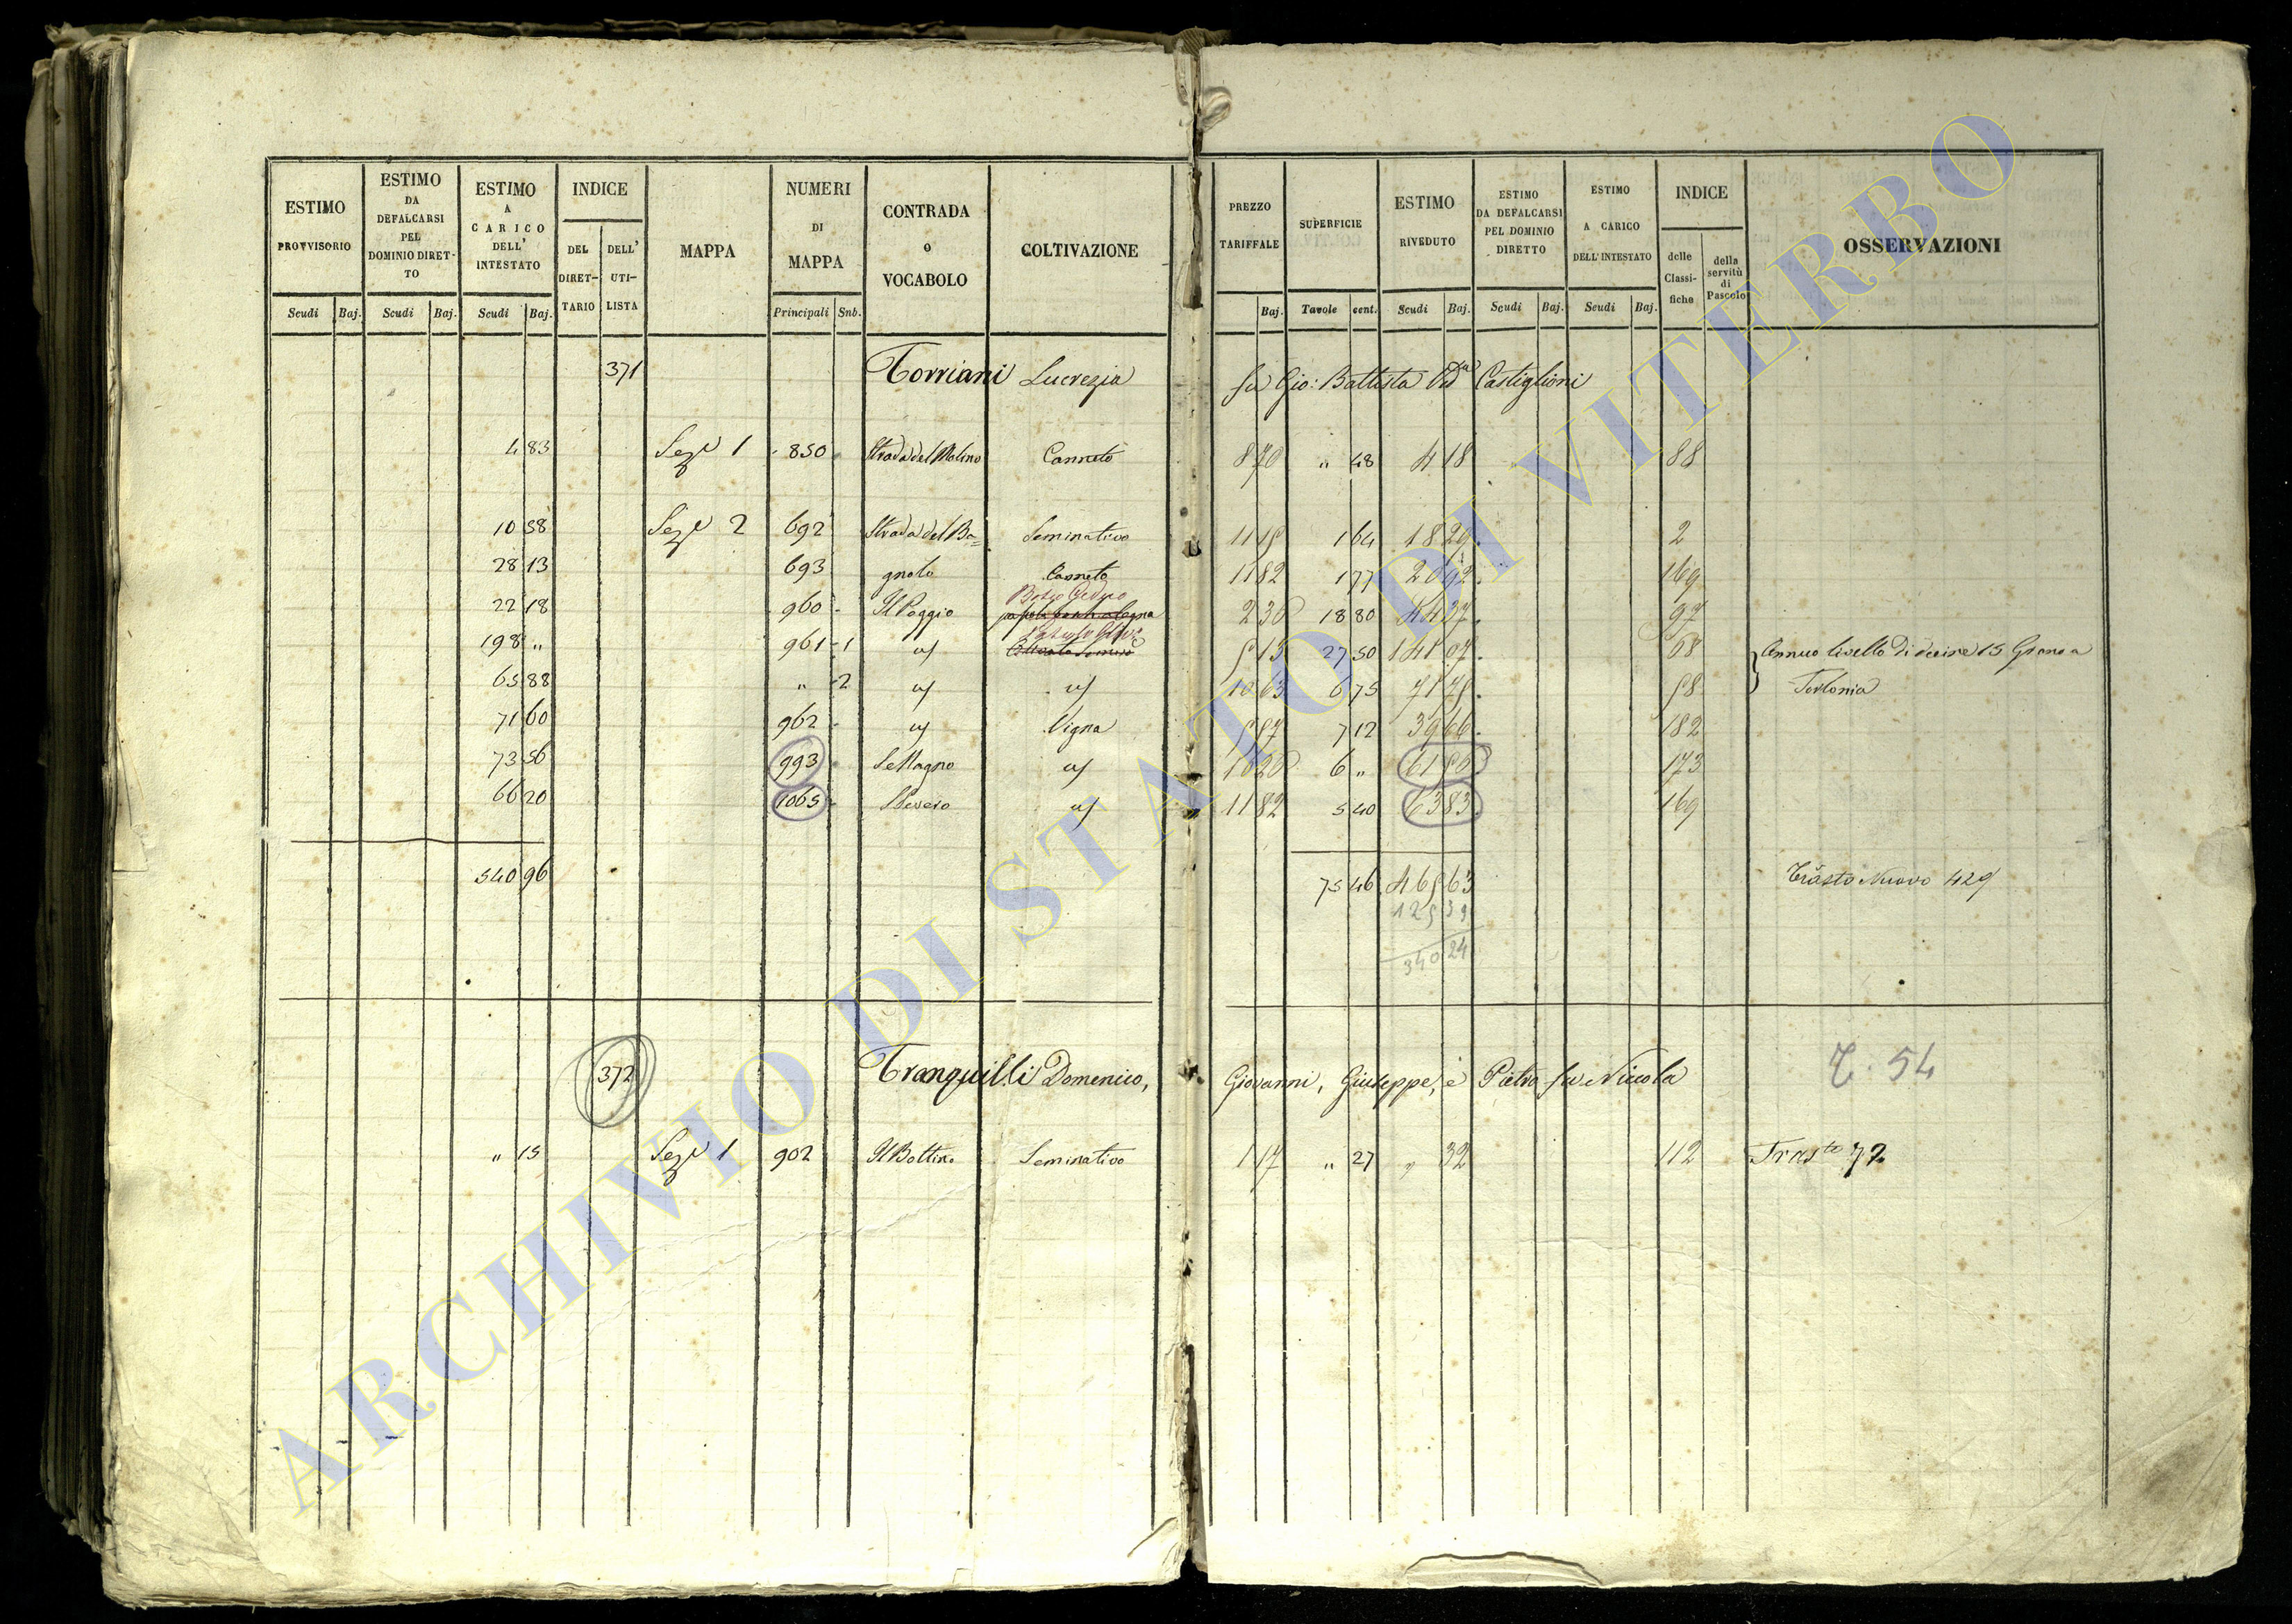 ESTIMO PROVVISORIO Scudi Baj.
ESTIMO DA DEFALCARSI PEL DOMINIO DIRET-TO Scudi Baj.
ESTIMO A CARICO DELL' INTESTATO Scudi Baj.
INDICE DEL DIRET-TARIO DELL' UTI-LISTA
MAPPA
NUMERI DI MAPPA Principali Snb.
CONTRADA O VOCABOLO
COLTIVAZIONE
PREZZO TARIFFALE Baj.
SUPERFICIE Tavole cent.
ESTIMO RIVEDUTO Scudi Baj.
ESTIMO DA DEFALCARSI PEL DOMINIO DIRETTO Scudi Baj.
ESTIMO A CARICO DELL'INTESTATO Scudi Baj.
INDICE delle Classi-fiche della servitù di Pascolo
OSSERVAZIONI
371 Torriani Lucrezia fu Gio: Battista Vda Castiglioni
4 83 Seze 1 850 Strada del Molino Canneto 8 70 " 48 4 18 88
10 58 Seze 2 692 Strada del Ba= Seminativo 11 15 1 64 18 29 2
28 13 693 gnolo Canneto 11 82 1 77 20 92 169
22 18 960 Il Poggio Bosco Ceduo 2 36 18 80 44 37 97
198 " 961 1 " 5 13 27 50 141 07 68 Annuo livello di decine 15 Grano a
65 88 " 2 " " 10 63 6 75 71 75 58 Torlonia
71 60 962 " Vigna 5 57 7 12 39 66 182
73 56 993 S. Magno " 10 26 6 " 61 56 173
66 20 1065 " 11 82 5 40 63 83 169
540 96 75 46 465 63 Trasto Nuovo 429
125 39
340 24
372 Tranquilli Domenico, Giovanni, Giuseppe, e Pietro fu Nicola T. 54
" 15 Seze 1 902 Il Bottino Seminativo 1 17 " 27 " 32 112 Trasto 72
ARCHIVIO DI STATO DI VITERBO